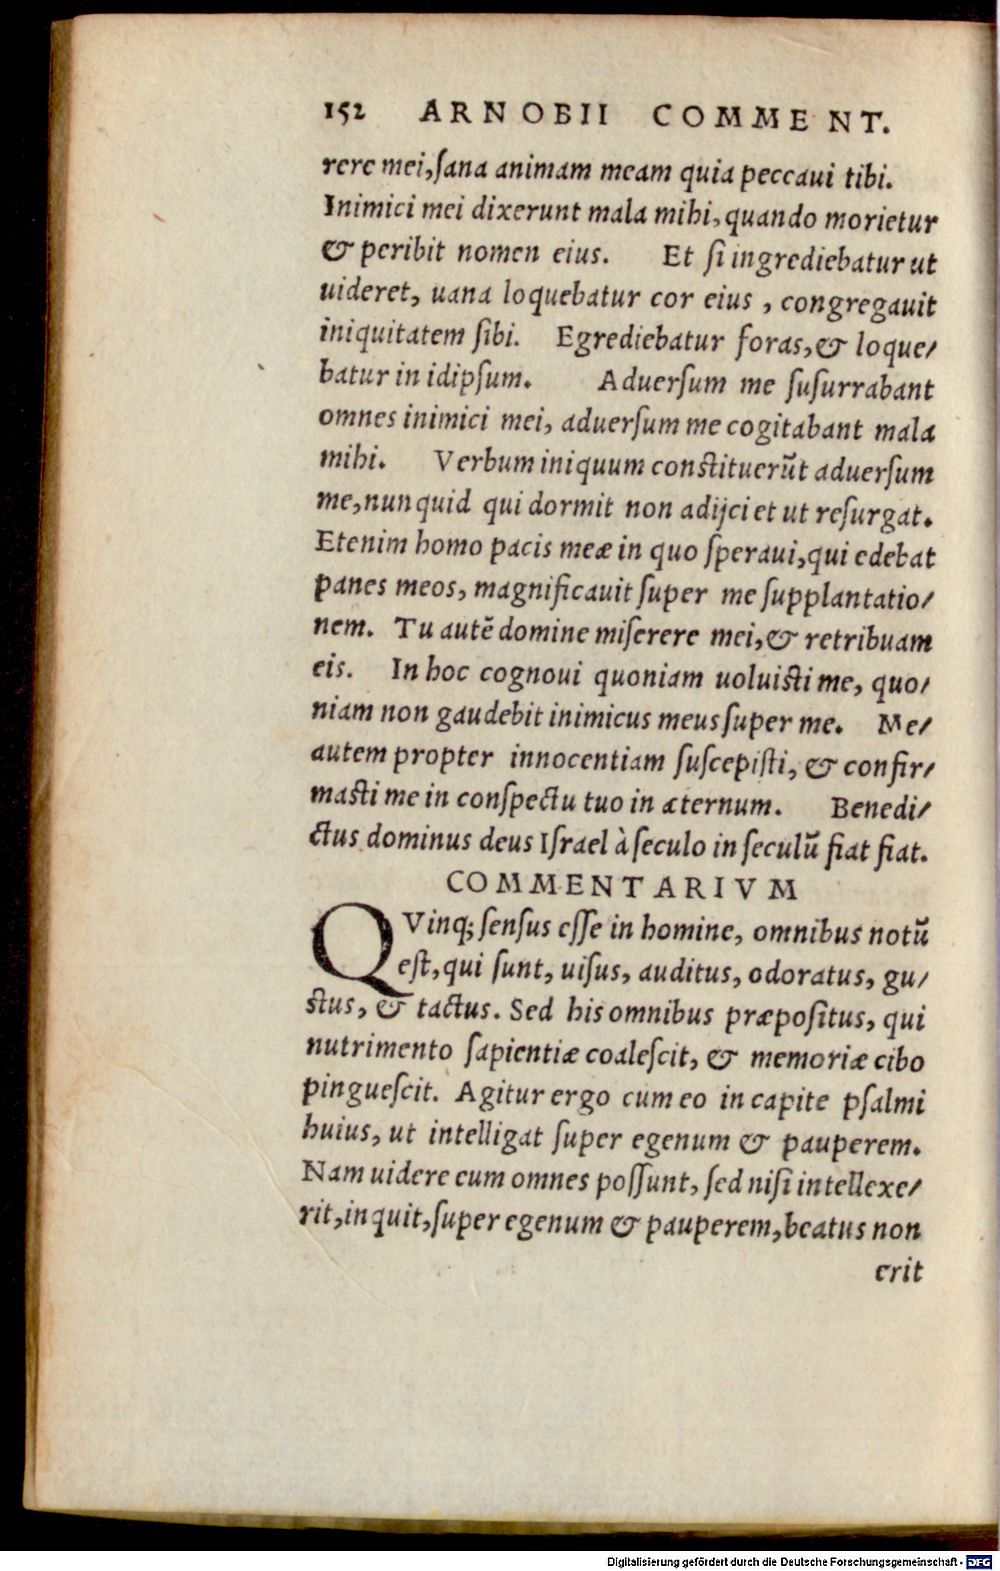 152 ARNOBII COMMENT.
rere mei, ſana animam meam quia peccaui tibi.
Inimici mei dixerunt mala mihi, quando morietur
& peribit nomen eius. Et ſi ingrediebatur ut
uideret, uana loquebatur cor eius, congregauit
iniquitatem ſibi. Egrediebatur foras, & loque/
batur in idipſum. Aduerſum me ſuſurrabant
omnes inimici mei, aduerſum me cogitabant mala
mihi. Verbum iniquum conſtituerūt aduerſum
me, nunquid qui dormit non adijciet ut reſurgat.
Etenim homo pacis meæ in quo ſperaui, qui edebat
panes meos, magnificauit ſuper me ſupplantatio/
nem. Tu autē domine miſerere mei, & retribuam
eis. In hoc cognoui quoniam uoluiſti me, quo/
niam non gaudebit inimicus meus ſuper me. Me/
autem propter innocentiam ſuſcepiſti, & confir/
maſti me in conſpectu tuo in æternum. Benedi/
ctus dominus deus Iſrael à ſeculo in ſeculū fiat fiat.
COMMENTARIVM
QVinq; ſenſus eſſe in homine, omnibus notū
eſt, qui ſunt, uiſus, auditus, odoratus, gu/
ſtus, & tactus. Sed his omnibus præpoſitus, qui
nutrimento ſapientiæ coaleſcit, & memoriæ cibo
pingueſcit. Agitur ergo cum eo in capite pſalmi
huius, ut intelligat ſuper egenum & pauperem.
Nam uidere eum omnes poſſunt, ſed niſi intellexe/
rit, inquit, ſuper egenum & pauperem, beatus non
erit
Digitalisierung gefördert durch die Deutsche Forschungsgemeinschaft - DFG